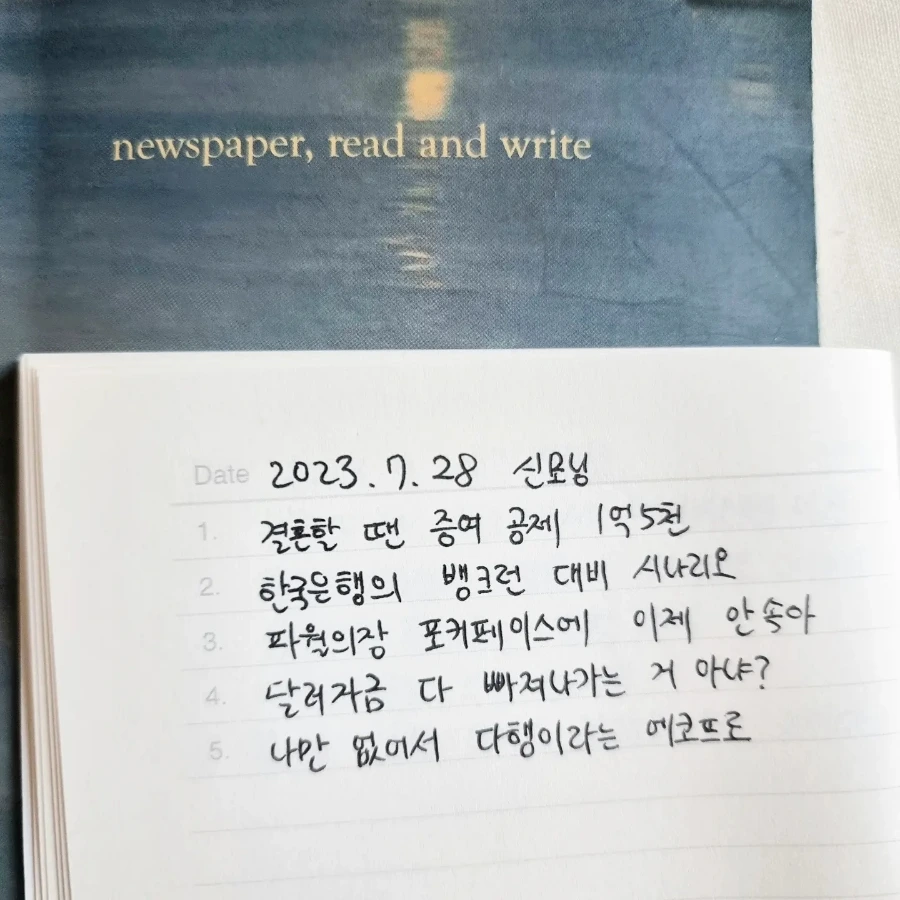 newspaper, read and write
Date 2023.7.28 신모닝
1. 결혼할 땐 증여 공제 1억5천
2. 한국은행의 뱅크런 대비 시나리오
3. 파월의장 포커페이스에 이제 안속아
4. 달러자금 다 빠져나가는 거 아냐?
5. 나만 없어서 다행이라는 에코프로